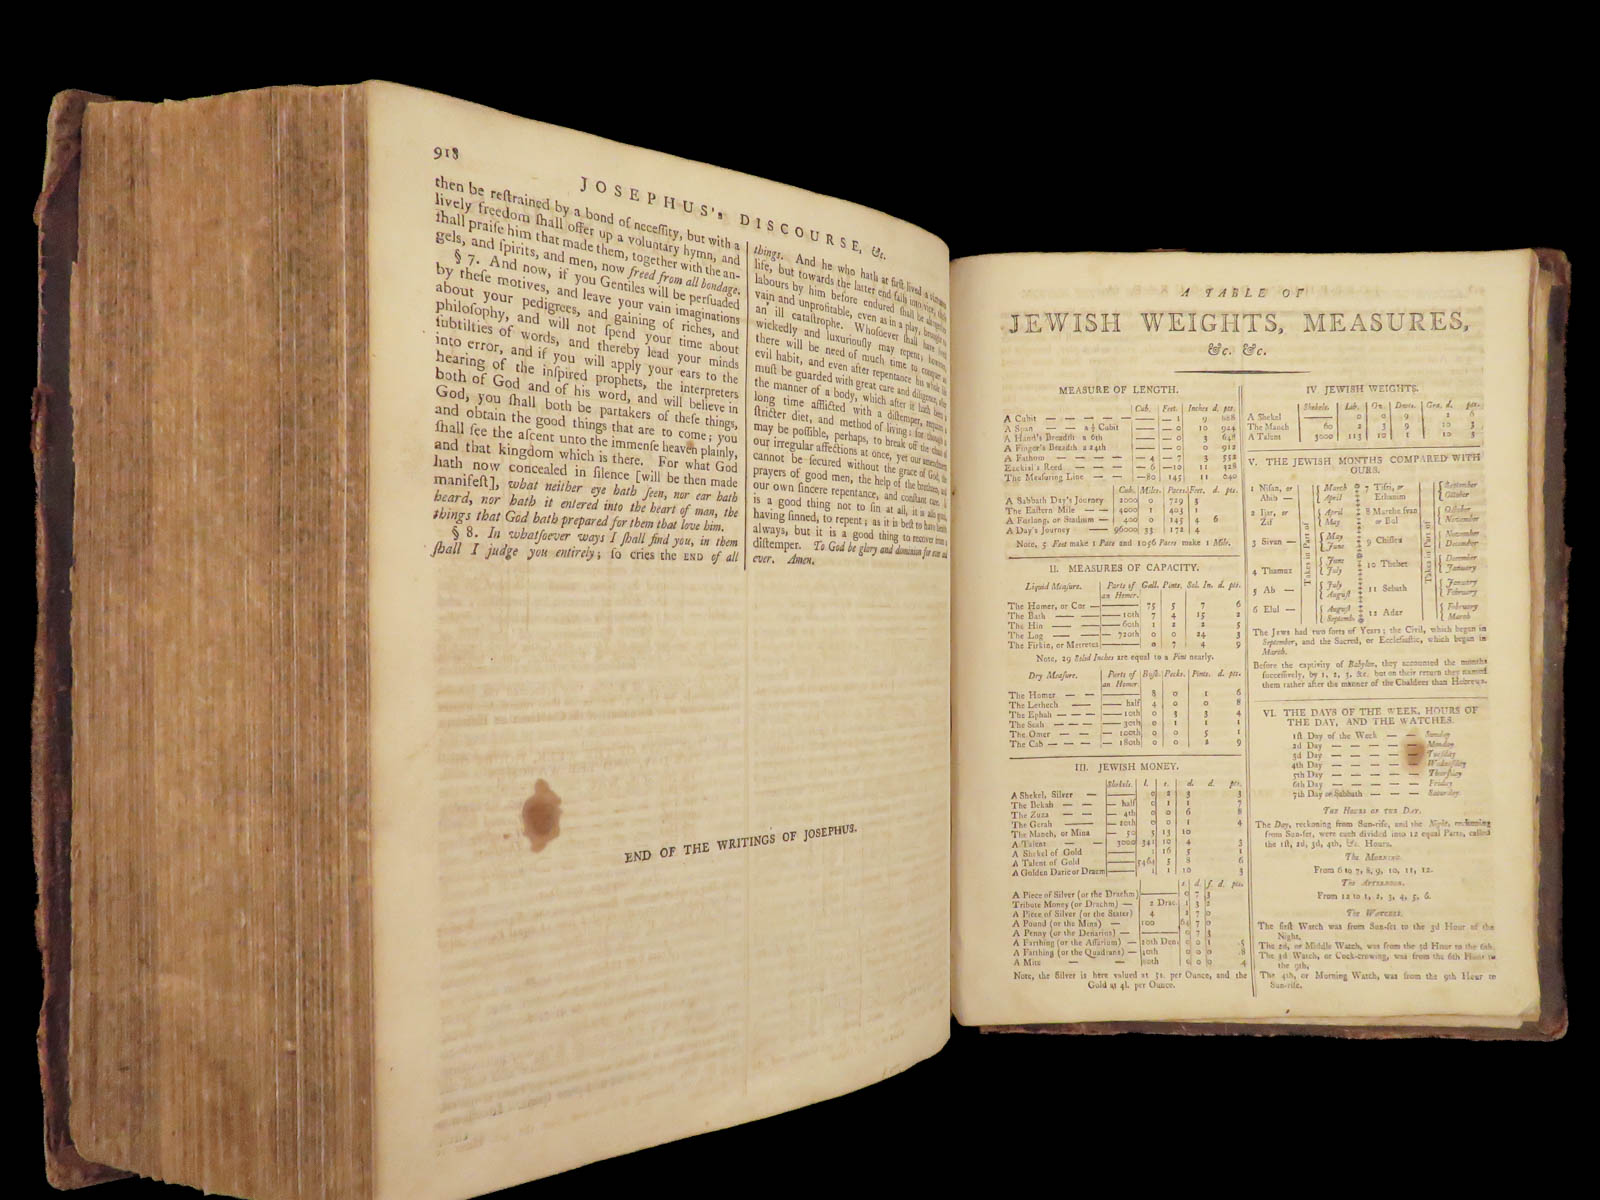 918
JOSEPHUS's DISCOURSE, &c.
then be reſtrained by a bond of neceſſity, but with a
lively freedom ſhall offer up a voluntary hymn, and
ſhall praiſe him that made them, together with the an-
gels, and ſpirits, and men, now freed from all bondage.
§ 7. And now, if you Gentiles will be perſuaded
by theſe motives, and leave your vain imaginations
about your pedigrees, and gaining of riches, and
philoſophy, and will not ſpend your time about
ſubtilties of words, and thereby lead your minds
into error, and if you will apply your ears to the
hearing of the inſpired prophets, the interpreters
both of God and of his word, and will believe in
God, you ſhall both be partakers of theſe things,
and obtain the good things that are to come; you
ſhall ſee the aſcent unto the immenſe heaven plainly,
and that kingdom which is there. For what God
hath now concealed in ſilence [will be then made
manifeſt], what neither eye hath ſeen, nor ear hath
heard, nor hath it entered into the heart of man, the
things that God hath prepared for them that love him.
§ 8. In whatſoever ways I ſhall find you, in them
ſhall I judge you entirely; ſo cries the END of all
things. And he who hath at firſt lived a virtuous
life, but towards the latter end falls into vice, theſe
labours by him before endured ſhall be altogether
vain and unprofitable, even as in a play, brought to
an ill cataſtrophe. Whoſoever ſhall have lived
wickedly and luxuriouſly may repent; however,
there will be need of much time to conquer an
evil habit, and even after repentance his whole life
muſt be guarded with great care and diligence, after
the manner of a body, which after it hath been a
long time afflicted with a diſtemper, requires a
ſtricter diet, and method of living: for though it
may be poſſible, perhaps, to break off the chain of
our irregular affections at once, yet our amendment
cannot be ſecured without the grace of God, the
prayers of good men, the help of the brethren, and
our own ſincere repentance, and conſtant care. It
is a good thing not to ſin at all, it is alſo good,
having ſinned, to repent; as it is beſt to have health
always, but it is a good thing to recover from a
diſtemper. To God be glory and dominion for ever and
ever. Amen.
END OF THE WRITINGS OF JOSEPHUS.
A TABLE OF
JEWISH WEIGHTS, MEASURES,
&c. &c.
MEASURE OF LENGTH.
Cub. Feet. Inches d. pts.
A Cubit — 1 9 888
A Span — a ½ Cubit — 0 10 944
A Hand's Breadth a 6th — 0 3 648
A Finger's Breadth a 24th — 0 0 912
A Fathom — 4 — 7 3 552
Ezekiel's Reed — 6 — 10 11 328
The Meaſuring Line — 80 145 11 040
Cub. Miles. Paces. Feet. d. pts.
A Sabbath Day's Journey 2000 0 729 3
The Eaſtern Mile — 4000 1 403 1
A Furlong, or Stadium — 400 0 145 4 6
A Day's Journey — 96000 33 172 4
Note, 5 Feet make 1 Pace and 1056 Paces make 1 Mile.
II. MEASURES OF CAPACITY.
Liquid Meaſure. Parts of Gall. Pints. Sol. In. d. pts.
an Homer.
The Homer, or Cor — 75 5 7 6
The Bath — 10th 7 4 15 2
The Hin — 60th 1 2 2 5
The Log — 720th 0 0 24 3
The Firkin, or Metretes — 0 7 4 9
Note, 29 Solid Inches are equal to a Pint nearly.
Dry Meaſure. Parts of Buſh. Pecks. Pints. d. pts.
an Homer.
The Homer — 8 0 1 6
The Lethech — half 4 0 0 8
The Ephah — 10th 0 3 3 4
The Seah — 30th 0 1 1 1
The Omer — 100th 0 0 5 1
The Cab — 180th 0 0 2 9
III. JEWISH MONEY.
Shekels. l. s. d. d. pts.
A Shekel, Silver — 0 2 3 3
The Bekah — half 0 1 1 7
The Zuza — 4th 0 0 6 8
The Gerah — 20th 0 0 1 4
The Maneh, or Mina — 50 5 13 10
A Talent — 3000 341 10 4 3
A Shekel of Gold — 1 16 5 1
A Talent of Gold — 5464 5 8 6
A Golden Daric or Dracm — 1 1 10 3
s. d. f. d. pts.
A Piece of Silver (or the Drachm) — 0 7 3
Tribute Money (or Drachm) — 2 Drac. 1 3 2
A Piece of Silver (or the Stater) 4 2 7 0
A Pound (or the Mina) — 100 64 7 0
A Penny (or the Denarius) — 0 7 3
A Farthing (or the Aſſarium) — 20th Den. 0 0 1 .5
A Farthing (or the Quadrans) — 40th 0 0 0 .8
A Mite — 80th 0 0 0 .4
Note, the Silver is here valued at 5s. per Ounce, and the
Gold at 4l. per Ounce.
IV. JEWISH WEIGHTS.
Shekels. Lib. Oz. Dwts. Gra. d. pts.
A Shekel — 0 0 9 2 6
The Maneh 60 2 3 9 10 3
A Talent 3000 113 10 1 10 3
V. THE JEWISH MONTHS COMPARED WITH
OURS.
1 Niſan, or Abib — March April
2 Ijar, or Zif April May
3 Sivan — May June
4 Thamuz June July
5 Ab — July Auguſt
6 Elul — Auguſt Septemb.
Takes in Part of
7 Tiſri, or Ethanim September October
8 Marcheſvan or Bul October November
9 Chiſleu November December
10 Thebet December January
11 Sebath January February
12 Adar February March
Takes in Part of
The Jews had two ſorts of Years; the Civil, which began in
September, and the Sacred, or Eccleſiaſtic, which began in
March.
Before the captivity of Babylon, they accounted the months
ſucceſſively, by 1, 2, 3, &c. but on their return they named
them rather after the manner of the Chaldees than Hebrews.
VI. THE DAYS OF THE WEEK, HOURS OF
THE DAY, AND THE WATCHES.
1ſt Day of the Week — Sunday
2d Day — Monday
3d Day — Tueſday
4th Day — Wedneſday
5th Day — Thurſday
6th Day — Friday
7th Day or Sabbath — Saturday.
The Hours of the Day.
The Day, reckoning from Sun-riſe, and the Night, reckoning
from Sun-ſet, were each divided into 12 equal Parts, called
the 1ſt, 2d, 3d, 4th, &c. Hours.
The Morning.
From 6 to 7, 8, 9, 10, 11, 12.
The Afternoon.
From 12 to 1, 2, 3, 4, 5, 6.
The Watches.
The firſt Watch was from Sun-ſet to the 3d Hour of the
Night,
The 2d, or Middle Watch, was from the 3d Hour to the 6th,
The 3d Watch, or Cock-crowing, was from the 6th Hour to
the 9th,
The 4th, or Morning Watch, was from the 9th Hour to
Sun-riſe.